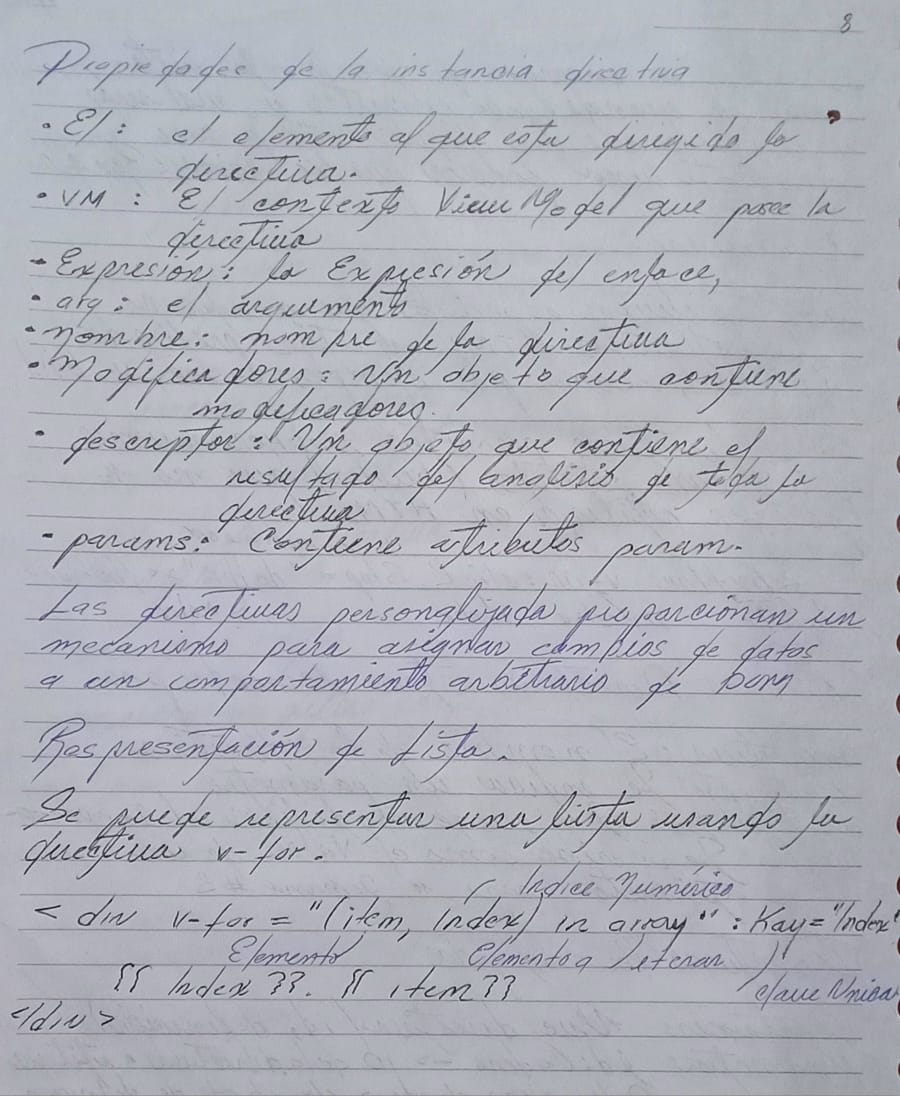 8
Propiedades de la instancia directiva
• El: el elemento al que esta dirigido la
directiva.
• VM: El contexto View Model que posee la
directiva
• Expresión: la Expresión del enlace,
• arg: el argumento
• nombre: nombre de la directiva
• Modificadores: Un objeto que contiene
modificadores.
• descriptor: Un objeto que contiene el
resultado del analisis de toda la
directiva
• params: Contiene atributos param.
Las directivas personalizada proporcionan un
mecanismo para asignar cambios de datos
a un comportamiento arbitrario de DOM
Respresentación de Lista.
Se puede representar una lista usando la
directiva v-for.
Indice Numérico
< div v-for = "(item, Index) in array" : Kay="Index"
Elemento Elemento a iterar
{{ Index }}. {{ item }} clave Unica
</div>